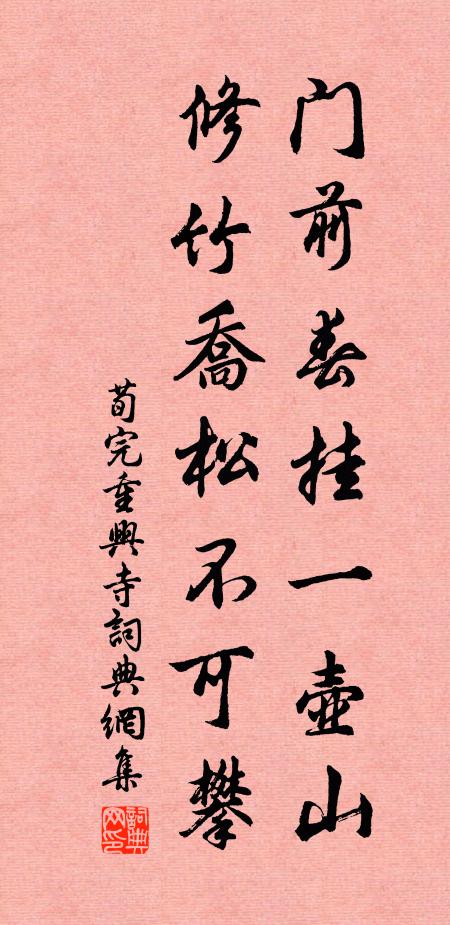 门前春挂一壶山
修竹喬松不可攀
荀完重興寺詞典網集
詞典网印